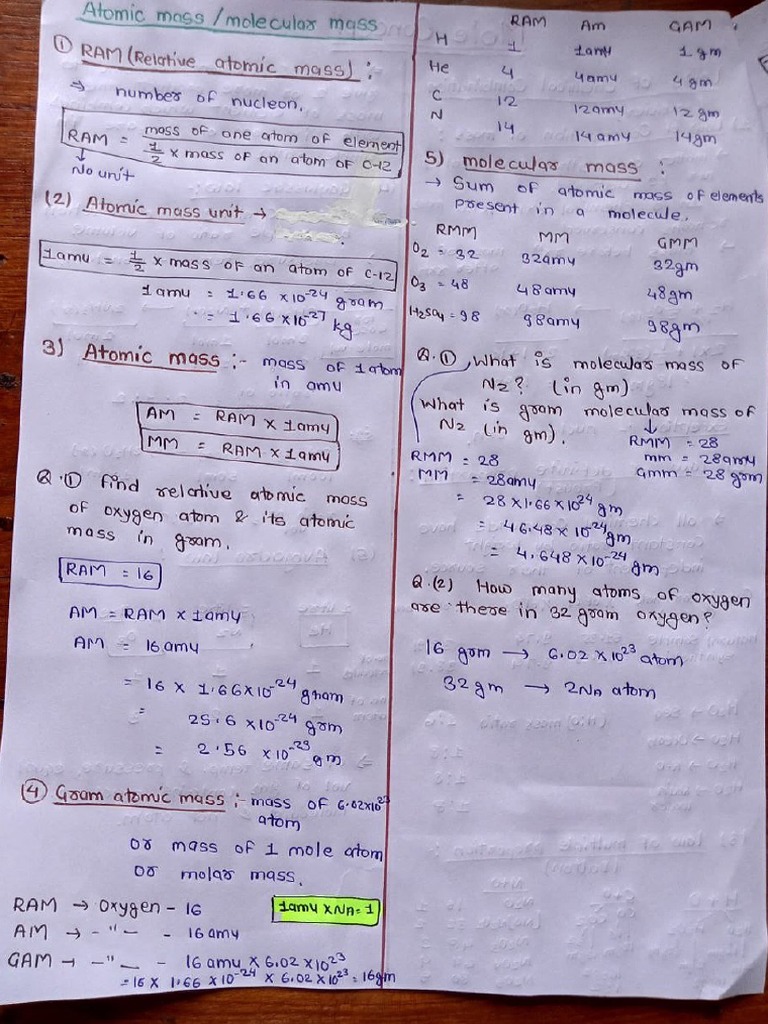 Atomic mass / molecular mass
① RAM (Relative atomic mass) :
⇒ number of nucleon.
RAM = mass of one atom of element / 1/2 × mass of an atom of C-12
↓
No unit
(2) Atomic mass unit →
1amu = 1/2 × mass of an atom of C-12
1amu = 1.66 × 10⁻²⁴ gram
= 1.66 × 10⁻²⁷ kg
3) Atomic mass :- mass of 1 atom
in amu
AM = RAM × 1amu
MM = RAM × 1amu
Q.① find relative atomic mass
of oxygen atom & its atomic
mass in gram.
RAM = 16
AM = RAM × 1amu
AM = 16 amu
= 16 × 1.66×10⁻²⁴ gram
= 25.6 × 10⁻²⁴ gm
= 2.56 × 10⁻²³ gm
④ Gram atomic mass :- mass of 6.02×10²³
atom
or mass of 1 mole atom
or molar mass.
RAM → oxygen - 16
1amu × NA = 1
AM → -"- - 16 amu
GAM → -"- - 16 amu × 6.02 × 10²³
= 16 × 1.66 × 10⁻²⁴ × 6.02 × 10²³ = 16gm
RAM Am GAM
H 1 1amu 1 gm
He 4 4amu 4 gm
C 12 12amu 12 gm
N 14 14 amu 14gm
5) molecular mass :
→ Sum of atomic mass of elements
present in a molecule.
RMM MM GMM
O₂ = 32 32amu 32gm
O₃ = 48 48amu 48gm
H₂SO₄ = 98 98amu 98gm
Q.① What is molecular mass of
N₂? (in gm)
What is gram molecular mass of
N₂ (in gm).
↓
RMM = 28
mm = 28amu
Gmm = 28 gm
RMM = 28
MM = 28amu
= 28 × 1.66 × 10²⁴ gm
= 46.48 × 10⁻²⁴ gm
= 4.648 × 10⁻²⁴ gm
Q.(2) How many atoms of oxygen
are there in 32 gram oxygen?
16 gm → 6.02 × 10²³ atom
32 gm → 2NA atom